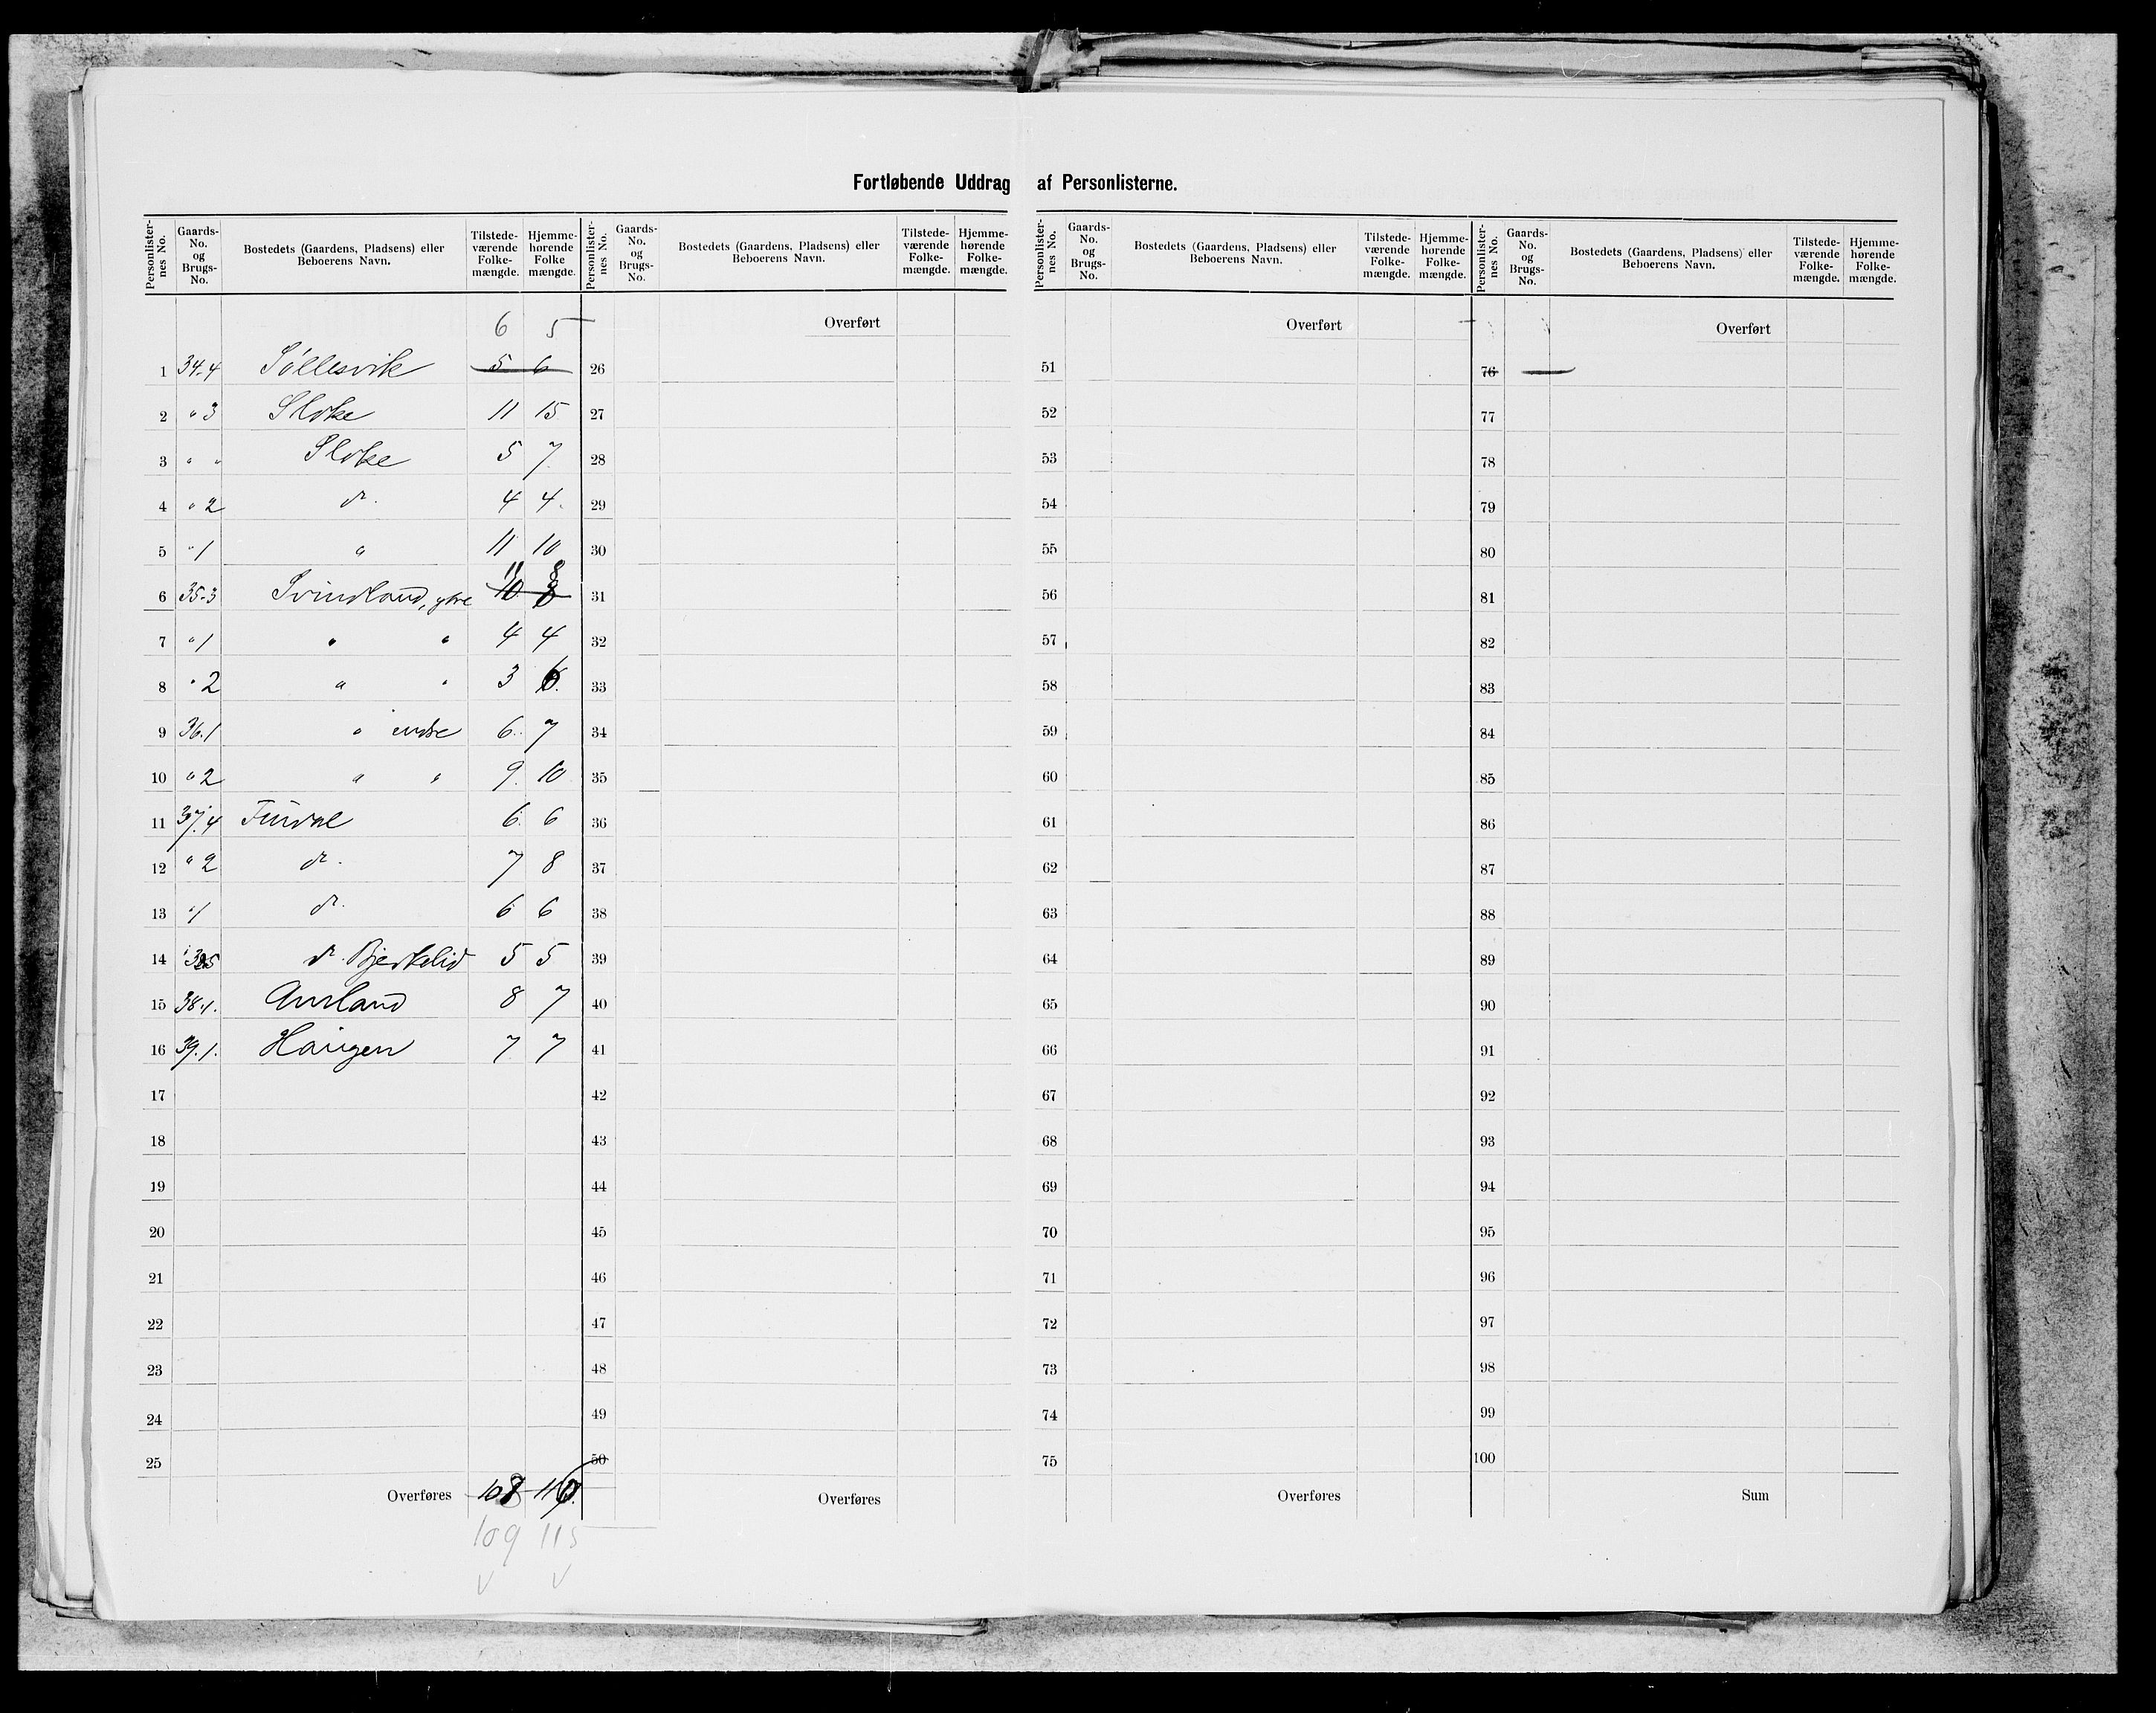 Fortløbende Uddrag af Personlisterne.
Personlister-nes No. Gaards-No. og Brugs-No. Bostedets (Gaardens, Pladsens) eller Beboerens Navn. Tilstede-værende Folke-mængde. Hjemme-hørende Folke mængde.
6 5
1 34.4 Söllesvik 5 6
2 " 3 Sloke 11 15
3 " " Sloke 5 7
4 " 2 do. 4 4
5 " 1 " 11 10
11 8
6 35.3 Svindland, ytre 10 8
7 " 1 " " 4 4
8 " 2 " " 3 6.
9 36.1 " indre 6 7
10 " 2 " " 9 10
11 37.4 Findal 6 6
12 " 2 do. 7 8
13 " 1 do. 6 6
14 do. Bjerkelid 5 5
15 38.1. Aurland 8 7
16 39.1. Haugen 7 7
17
18
19
20
21
22
23
24
25
Overføres 108 116
109 115
V V
Personlister-nes No. Gaards-No. og Brugs-No. Bostedets (Gaardens, Pladsens) eller Beboerens Navn. Tilstede-værende Folke-mængde. Hjemme-hørende Folke-mængde.
Overført
26
27
28
29
30
31
32
33
34
35
36
37
38
39
40
41
42
43
44
45
46
47
48
49
50
Overføres
Personlister-nes No. Gaards-No. og Brugs-No. Bostedets (Gaardens, Pladsens) eller Beboerens Navn. Tilstede-værende Folke-mængde. Hjemme-hørende Folke-mængde.
Overført
51
52
53
54
55
56
57
58
59
60
61
62
63
64
65
66
67
68
69
70
71
72
73
74
75
Overføres
Personlister-nes No. Gaards-No. og Brugs-No. Bostedets (Gaardens, Pladsens) eller Beboerens Navn. Tilstede-værende Folke-mængde. Hjemme-hørende Folke-mængde.
Overført
76
77
78
79
80
81
82
83
84
85
86
87
88
89
90
91
92
93
94
95
96
97
98
99
100
Sum